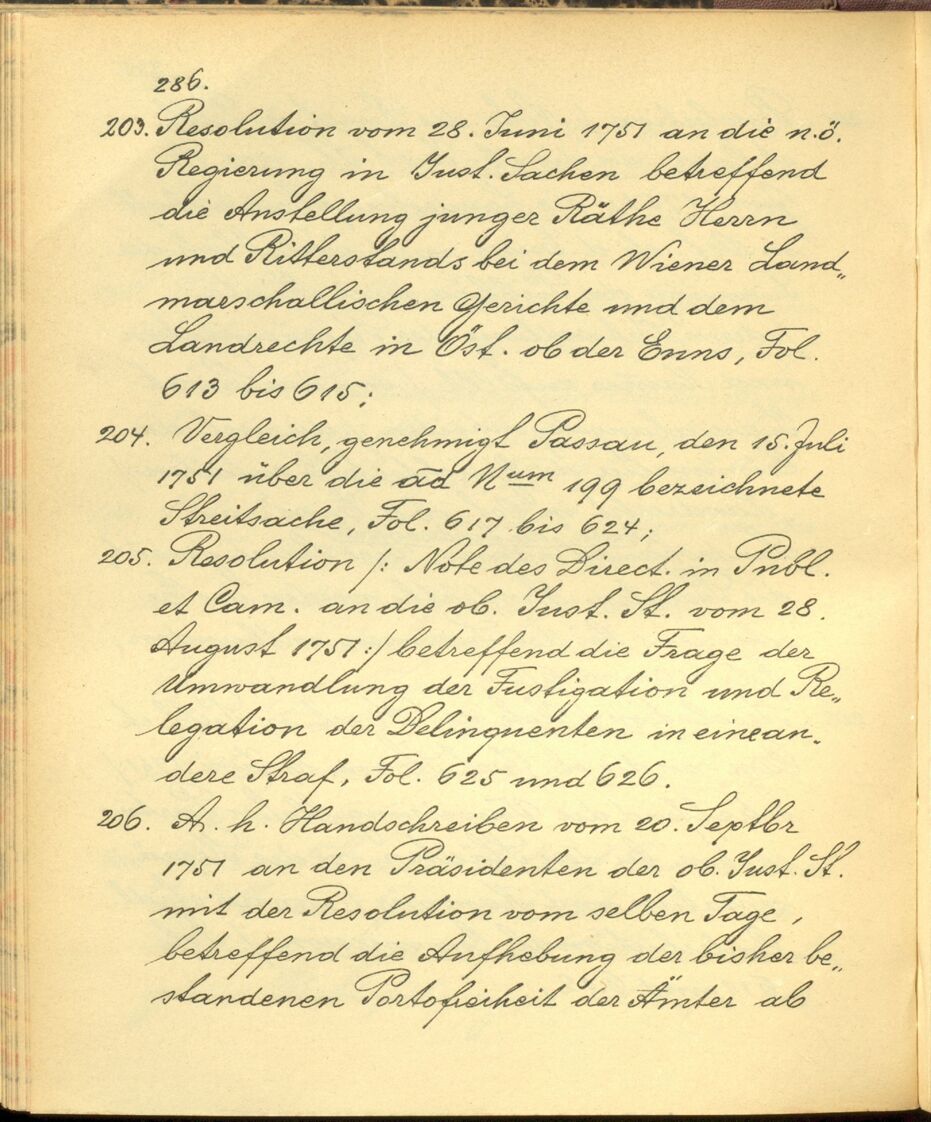 286.
203. Resolution vom 28. Juni 1751 an die n.ö.
Regierung in Just. Sachen betreffend
die Anstellung junger Räthe Herrn
und Ritterstands bei dem Wiener Land„
marschallischen Gerichte und dem
Landrechte in Öst. ob der Enns, Fol.
613 bis 615;
204. Vergleich, genehmigt Passau, den 15. Juli
1751 über die ad Num 199 bezeichnete
Streitsache, Fol. 617 bis 624;
205. Resolution /: Note des Direct. in Publ.
et Cam. an die ob. Just. St. vom 28.
August 1751:/ betreffend die Frage der
Umwandlung der Fustigation und Re„
legation der Delinquenten in eine an„
dere Straf, Fol. 625 und 626.
206. A. h. Handschreiben vom 20. Septbr
1751 an den Präsidenten der ob. Just. St.
mit der Resolution vom selben Tage,
betreffend die Aufhebung der bisher be„
standenen Portofreiheit der Ämter ab